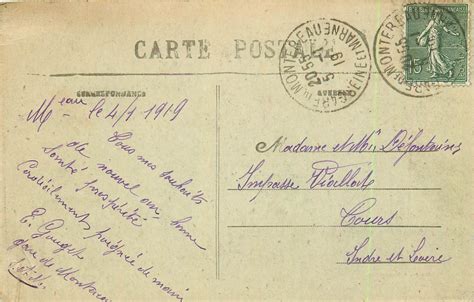 CARTE POSTALE
CORRESPONDANCE
GARE DE MONTEREAU (SEINE ET MARNE)
20 55
5
19
15
Meau le 4/1 1919
Tous mes souhaits
de nouvel an bonne
santé prospérité
Cordialement poignée de main
gare de Montereau
Madame et Mr Défontaine
Impasse
Tours
Indre et Loire